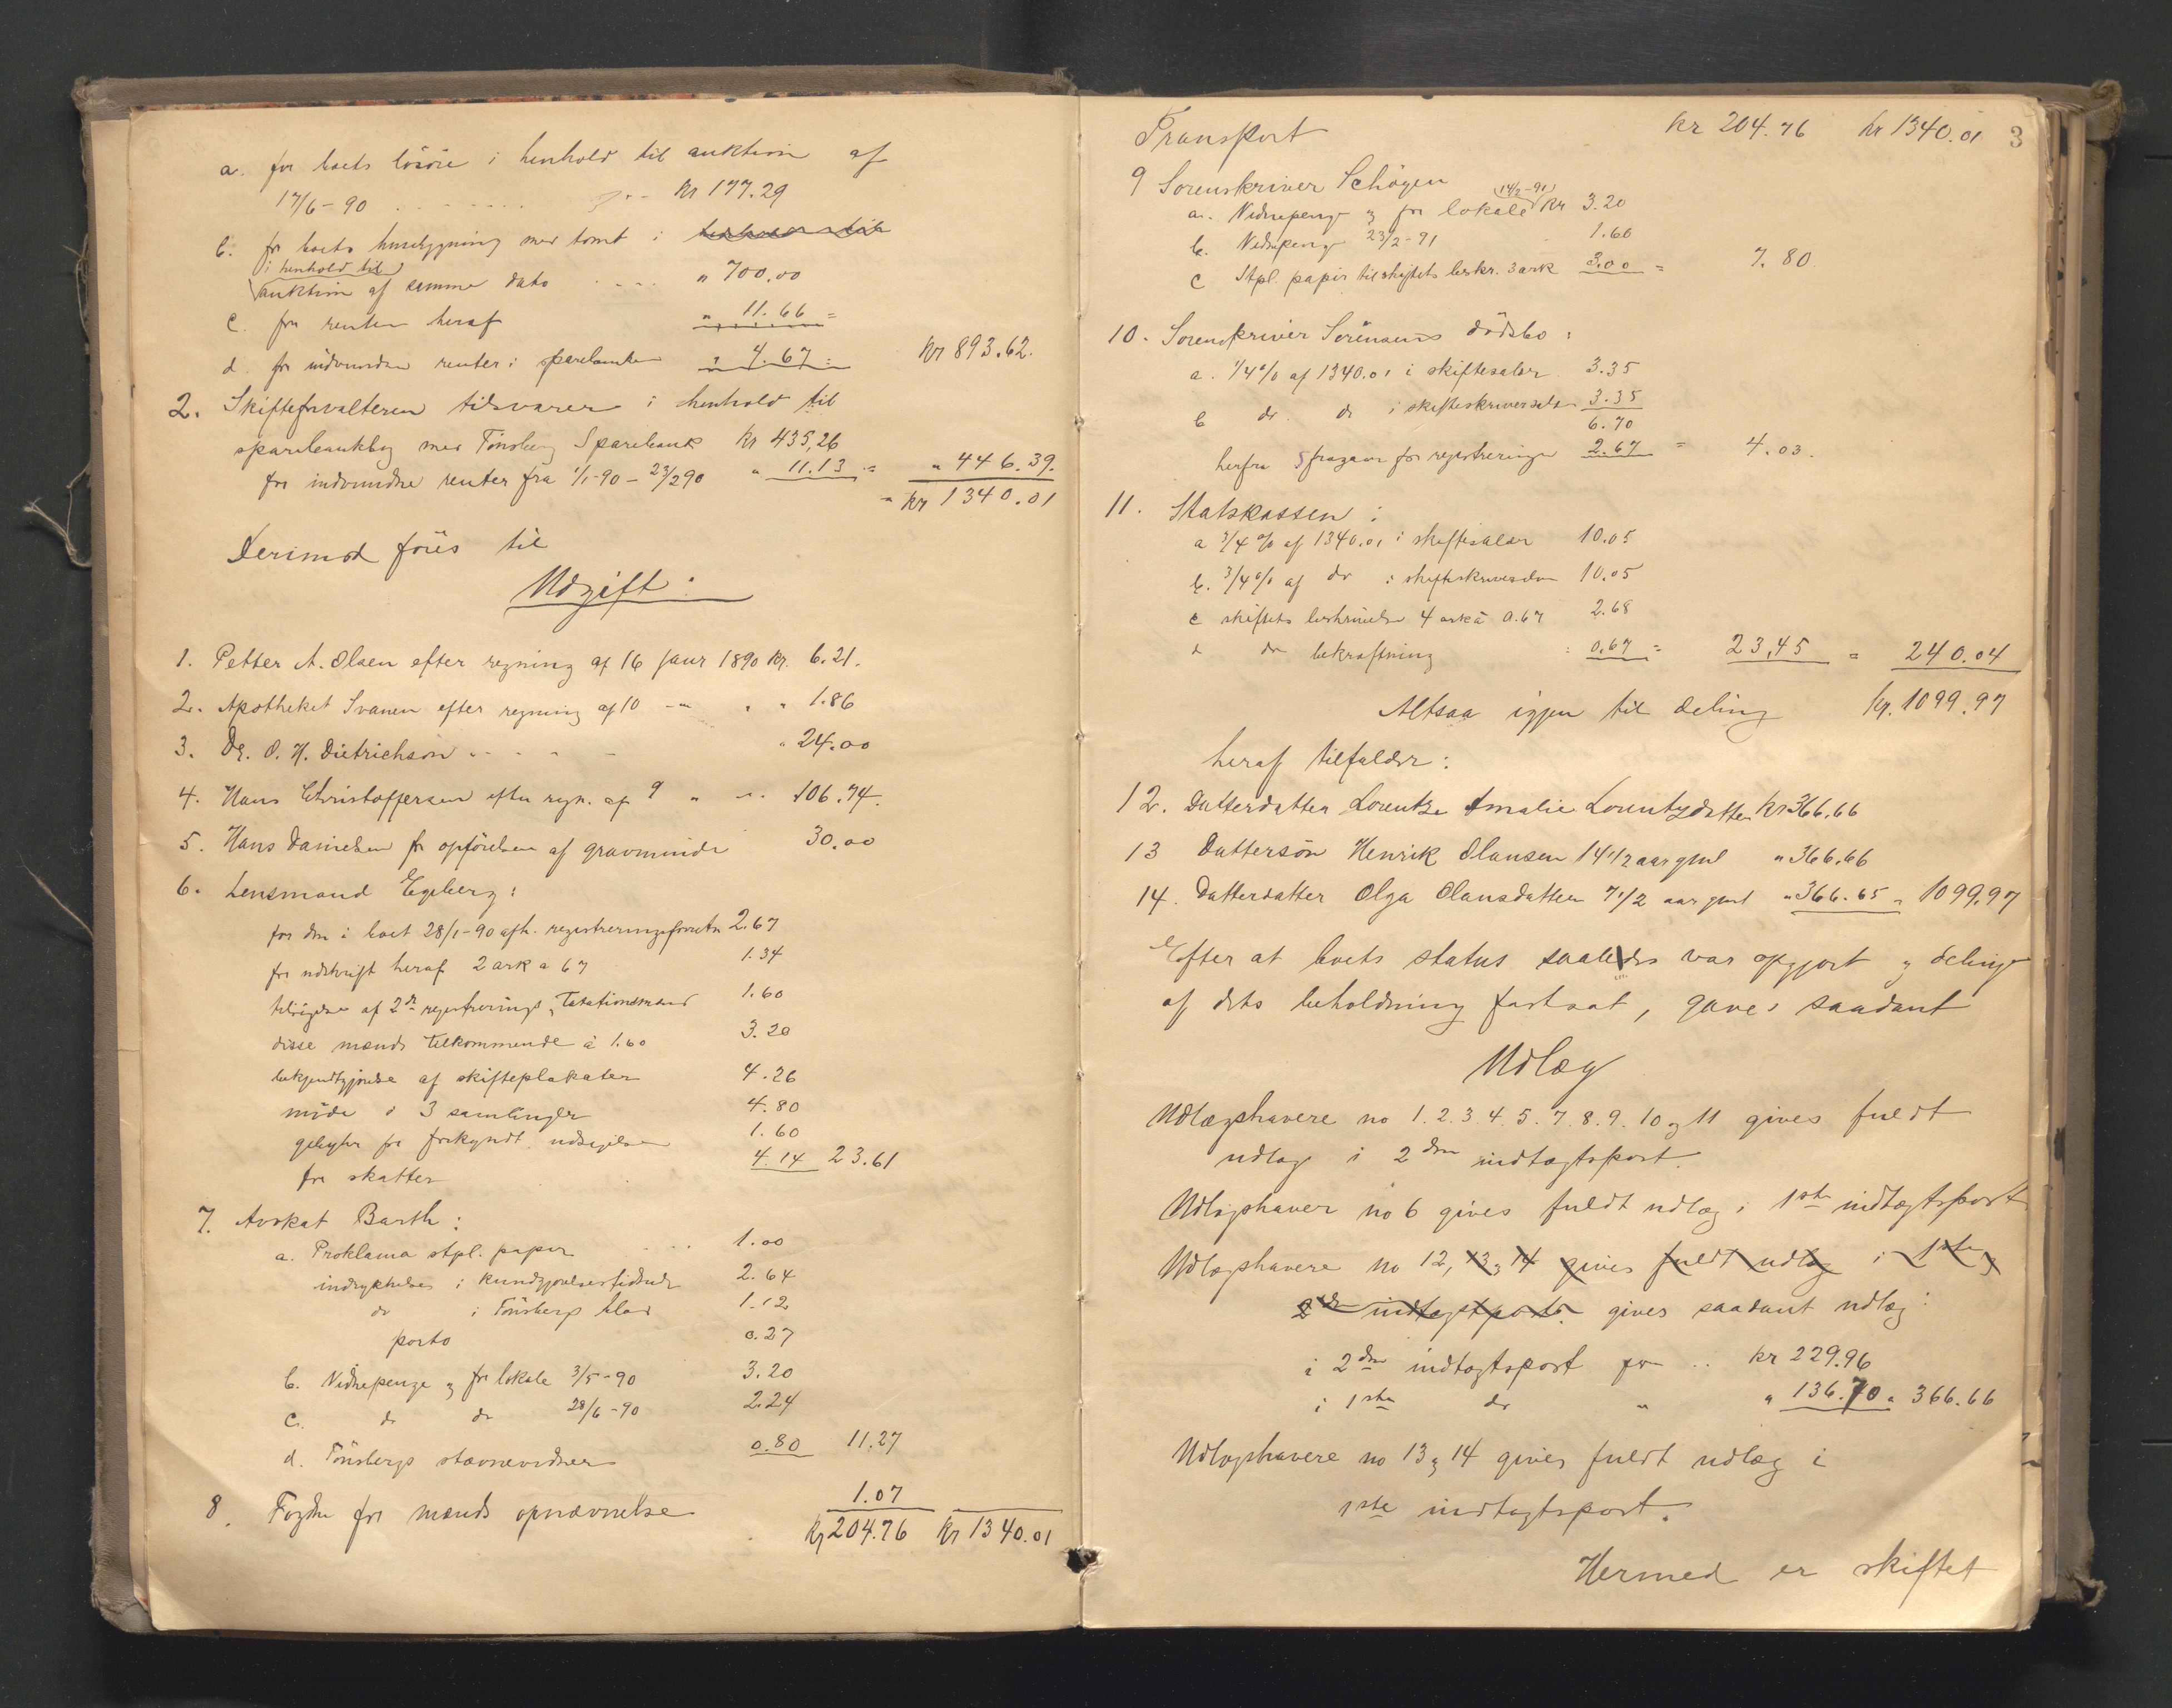 a. for boets lösöre i henhold til auktion af
17/6-90 . . . . . . . . Kr 177.29
b. for boets husbygning med tomt i henhold til
i henhold til
auktion af samme dato . . . . " 700.00
c. for renter heraf " 11.66 =
d. for indvundne renter i sparebanken " 4.67 = Kr 893.62.
2. Skifteforvalteren tilsvarer i henhold til
sparebankbog med Tönsberg Sparebank Kr 435,26
for indvundne renter fra 1/1-90 - 23/290 " 11.13 = " 446.39.
" Kr 1340.01
Derimod föres til
Udgift:
1. Petter A. Olsen efter regning af 16 janr 1890 Kr. 6.21.
2. Apotheket Svanen efter regning af 10 -"- " " 1.86
3. Dr. O. H. Dietrichson - - - - " 24.00
4. Hans Christoffersen efter regn. af 9 " -"- 106.74.
5. Hans Danielsen for opförelsen af gravminde 30.00
6. Lensmand Egeberg:
for den i boet 28/1-90 afh. registreringsforretn 2.67
for udskrift heraf 2 ark a 67 1.34
tilsigelse af 2de registrerings & Taxationsmænd 1.60
disse mænds tilkommende à 1.60 3.20
bekjendtgjørelse af skifteplakater 4.26
möde i 3 samlinger 4.80
gebyhr for forkyndt. udsigelsen 1.60
for skatter 4.14 23.61
7. Avokat Barth:
a. Proklama stpl. papir . . . 1.00
indrykkelser i Kundgjørelsestidende 2.64
do i Tönsbergs blad 1.12
porto 0.27
b. Vidnepenge & for lokale 3/5-90 3.20
c. do do 28/6-90 2.24
d. Tönsbergs stævnevidner 0.80 11.27
8. Fogden for mænds opnævnelse 1.07
Kr 204.76 Kr 1340.01
Transport Kr 204.76 Kr 1340.01 3
9 Sorenskriver Schøgen
14/2-91
a. Vidnepenge & for lokale Kr 3.20
b. Vidnepenge 23/2-91 1.60
c Stpl. papir til skiftets beskr. 3 ark 3.00 = 7.80
10. Sorenskriver Sörensens dödsbo:
a. 1/4% af 1340.01 i skiftesalær 3.35
b do. do i skifteskriversalær 3.35
6.70
herfra fragaar for registreringen 2.67 = 4.03.
11. Statskassen:
a 3/4% af 1340.01 i skiftesalær 10.05
b. 3/4% af do i skifteskriversalær 10.05
c skiftets beskrivelse 4 ark à 0.67 2.68
d do bekræftning : 0.67 = 23,45 = 240.04
Altsaa igjen til deling Kr. 1099.97
heraf tilfalder:
12. Datterdatter Lorentze Amalie Lorentzdatter Kr 366.66
13 Dattersön Henrik Olausen 14 1/2 aar gml " 366.66
14. Datterdatter Olga Olausdatter 7 1/2 aar gml " 366.65 = 1099,97
Efter at boets status saaledes var opgjort & delingen
af dets beholdning fastsat, gaves saadant
Udlæg
Udlægshavere no 1. 2. 3. 4. 5. 7. 8. 9. 10 og 11 gives fuldt
udlæg i 2den indtægtspost.
Udlægshaver no 6 gives fuldt udlæg i 1ste indtægtspost
Udlægshavere no 12, 13 & 14 gives fuldt udlæg i 1ste &
2de indtægtsposte. gives saadant udlæg:
i 2den indtægtspost for .. Kr 229.96
i 1ste do " " 136.70 = 366.66
Udlægshavere no 13 & 14 gives fuldt udlæg i
1ste indtægtspost.
Hermed er skiftet